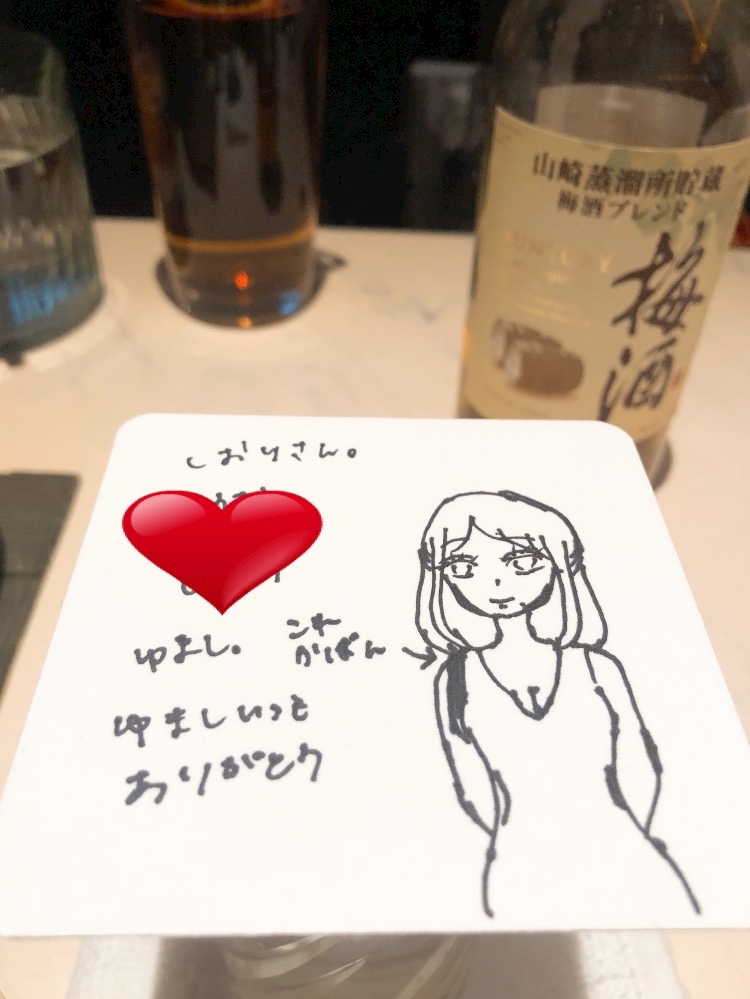 しおりさん。
ゆまし。
これ
かばん
ゆましいつも
ありがとう
山崎蒸溜所貯蔵
梅酒ブレンド
梅酒